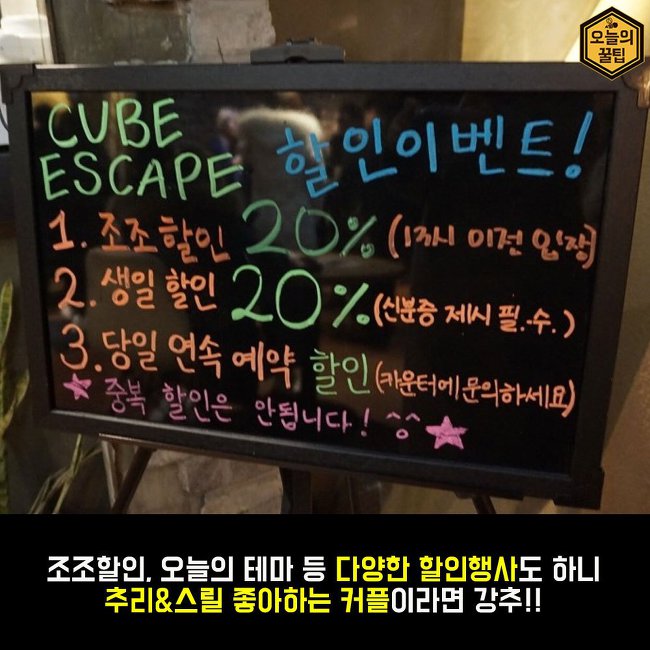 오늘의
꿀팁
CUBE
ESCAPE 할인이벤트!
1. 조조할인 20% (13시 이전 입장)
2. 생일 할인 20% (신분증 제시 필.수.)
3. 당일 연속 예약 할인 (카운터에 문의하세요)
★ 중복 할인은 안됩니다! ^오^ ★
조조할인, 오늘의 테마 등 다양한 할인행사도 하니
추리&스릴 좋아하는 커플이라면 강추!!